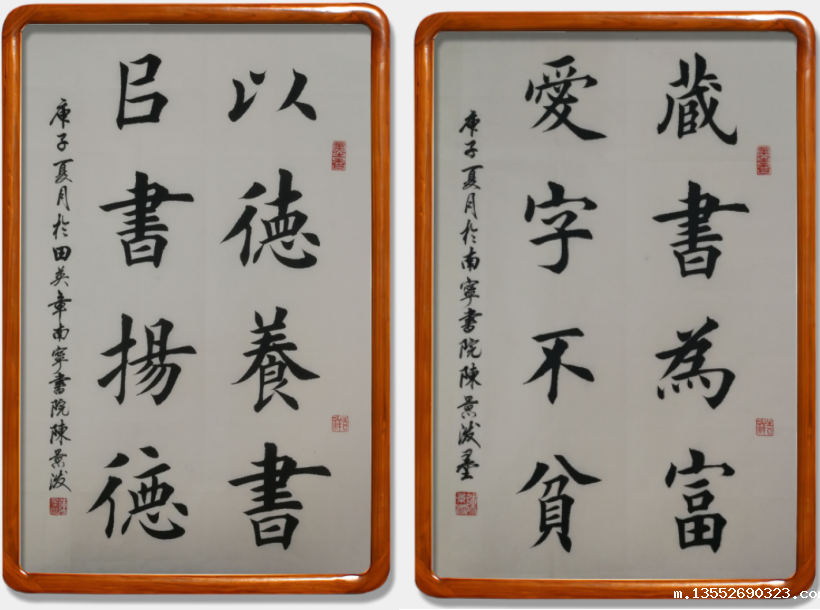 以德養書
㠯書揚德
庚子夏月於田英章南寧書院陳景
藏書為富
愛字不貧
庚子夏月於南寧書院陳景墨
m.13552690323.co